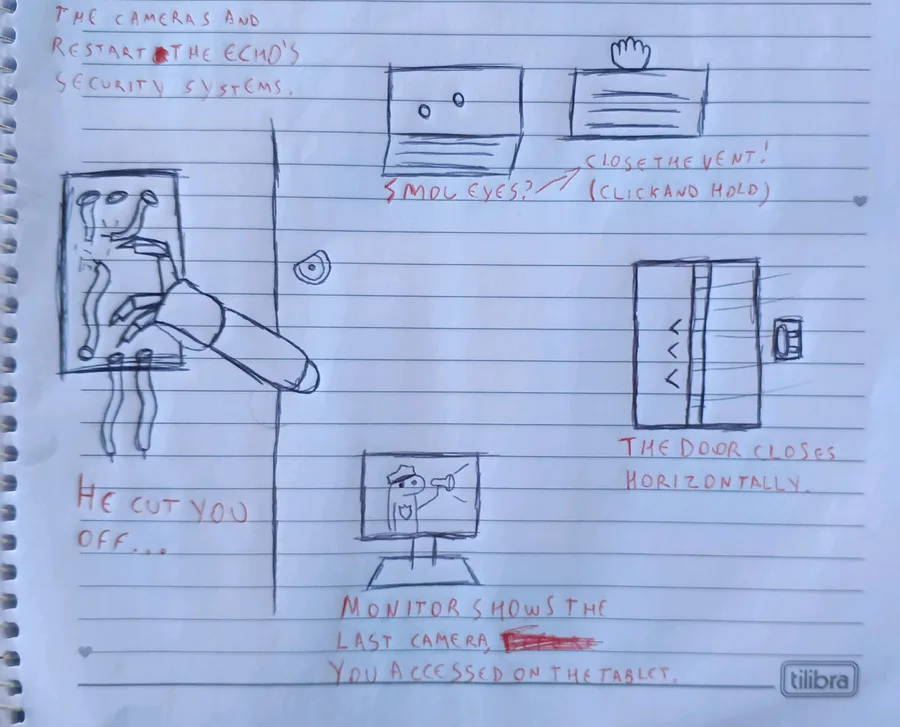 THE CAMERAS AND
RESTART THE ECHO'S
SECURITY SYSTEMS.
SMOL EYES?
CLOSE THE VENT!
(CLICK AND HOLD)
THE DOOR CLOSES
HORIZONTALLY.
HE CUT YOU
OFF...
MONITOR SHOWS THE
LAST CAMERA,
YOU ACCESSED ON THE TABLET.
tilibra